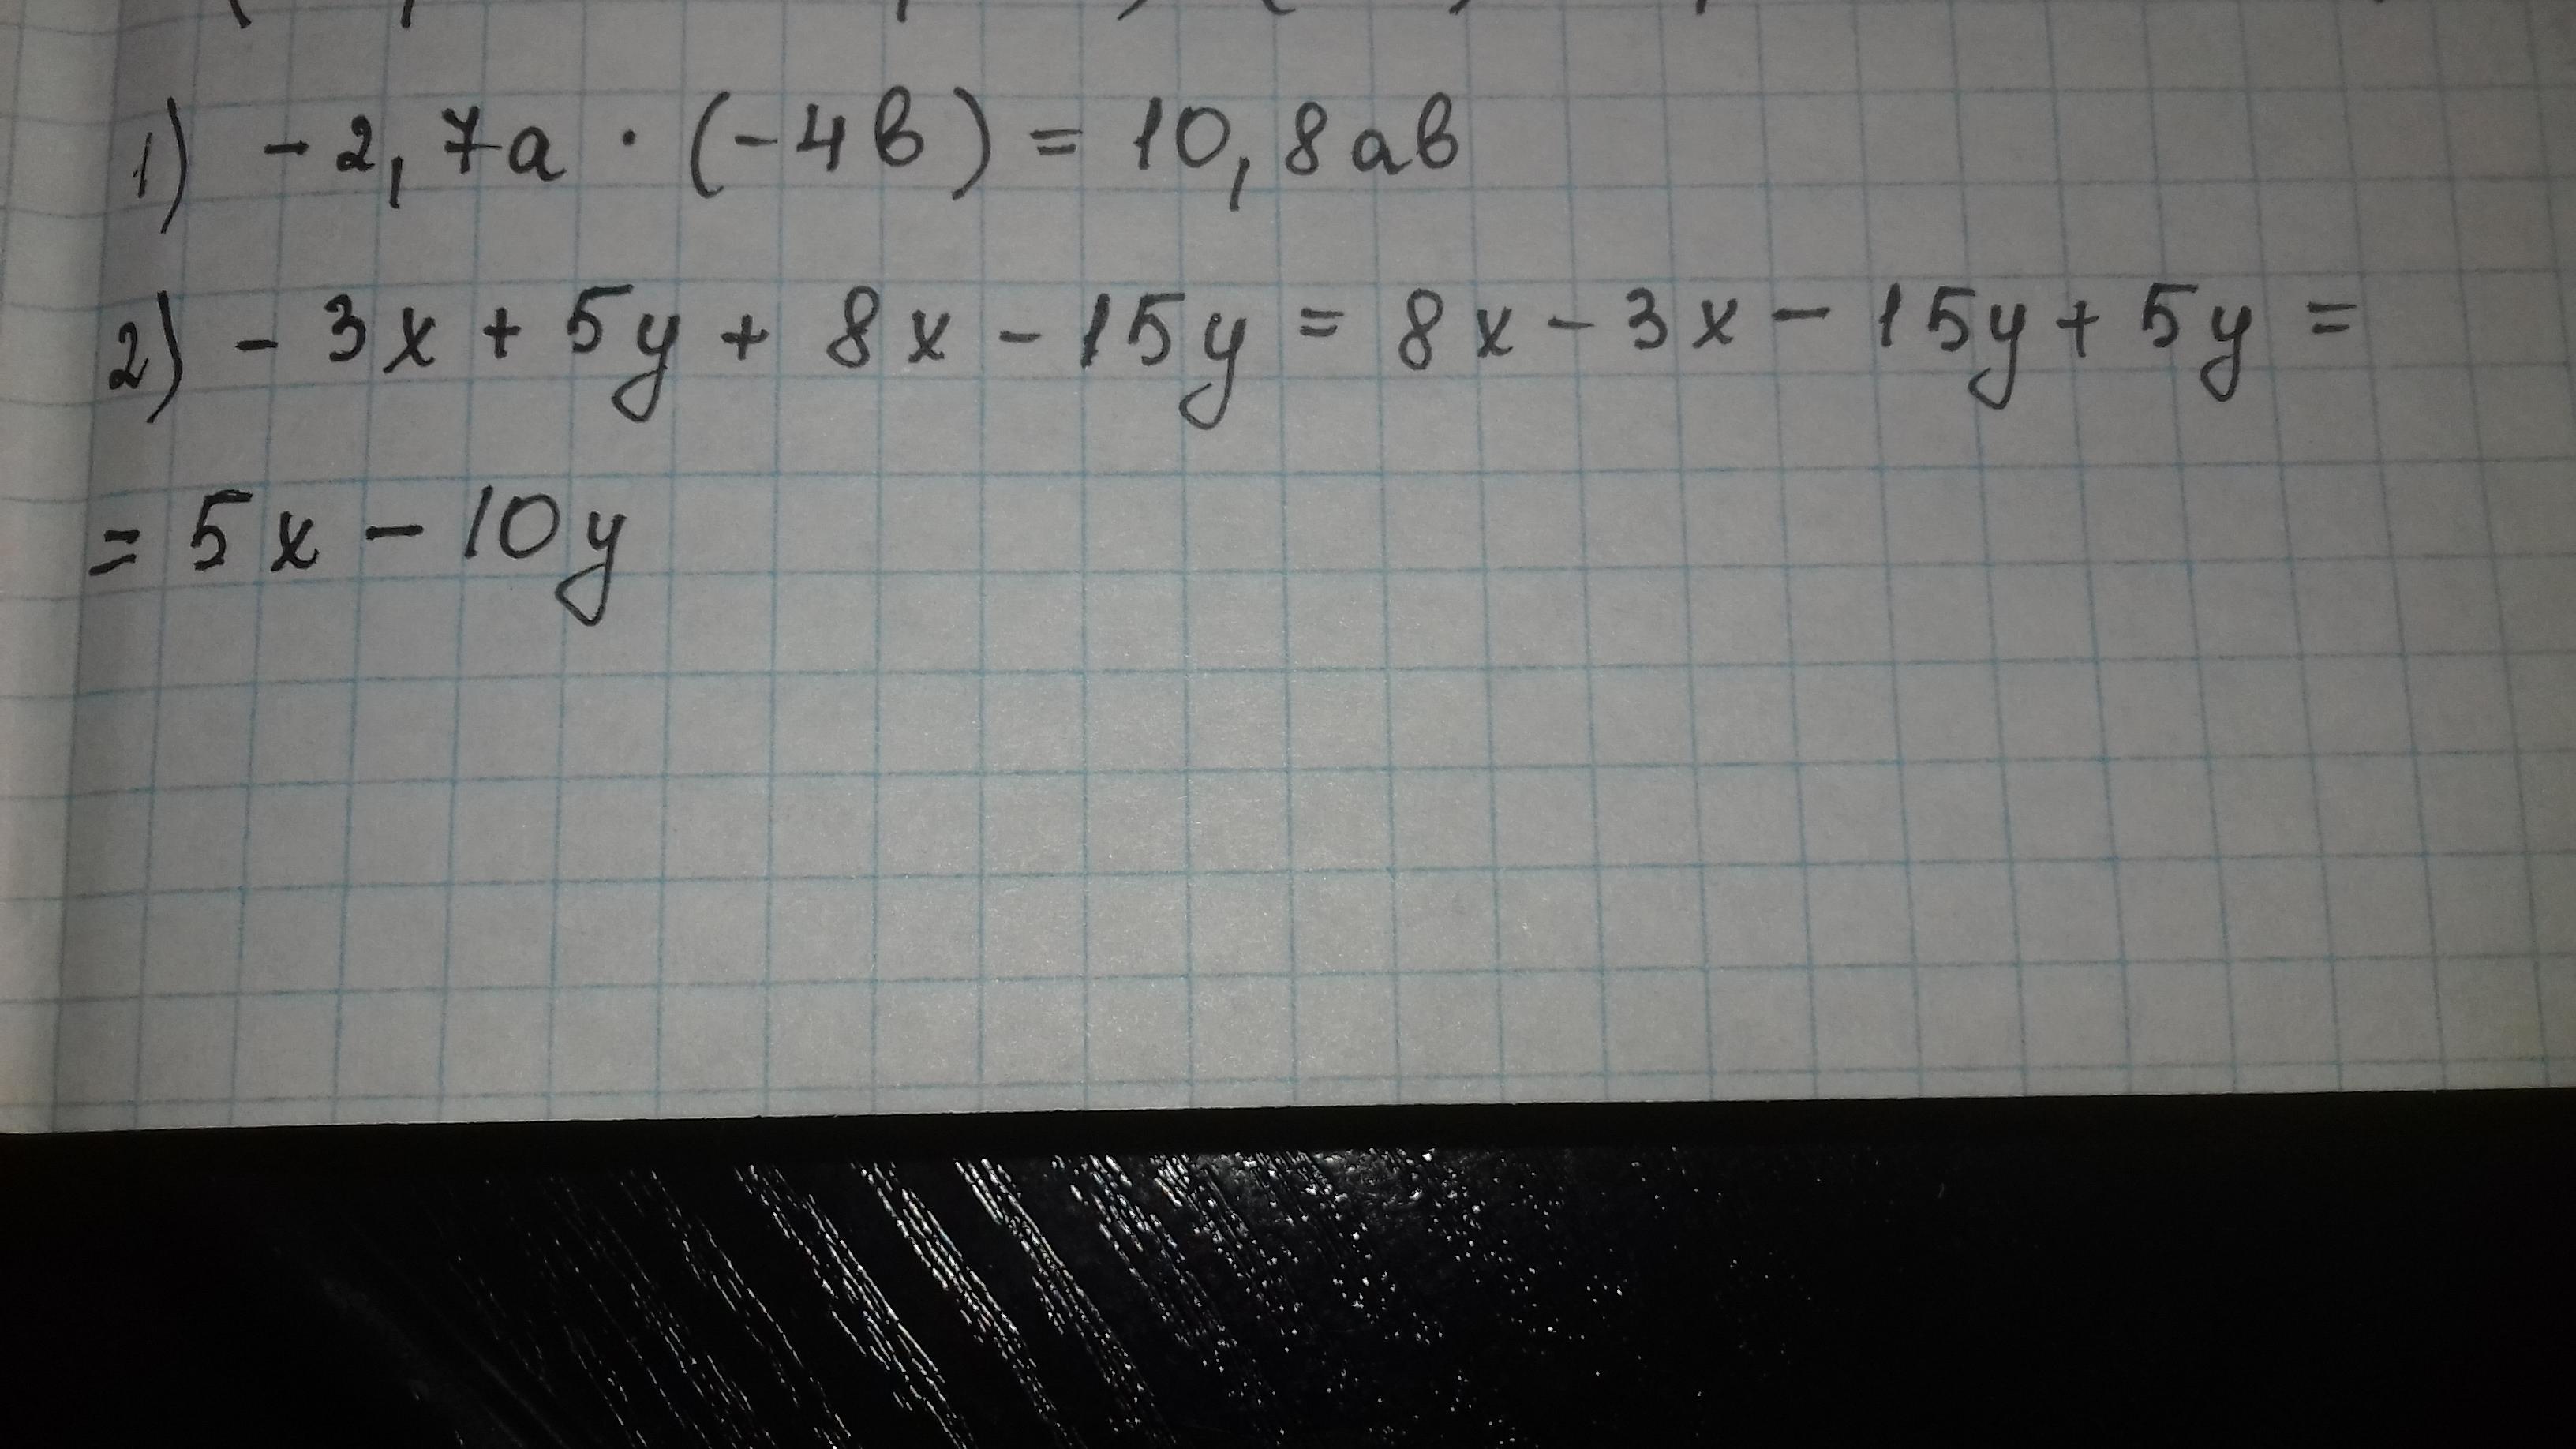 1) - 2,7a · (-4в) = 10,8ав
2) - 3x + 5y + 8x - 15y = 8x - 3x - 15y + 5y =
= 5x - 10y